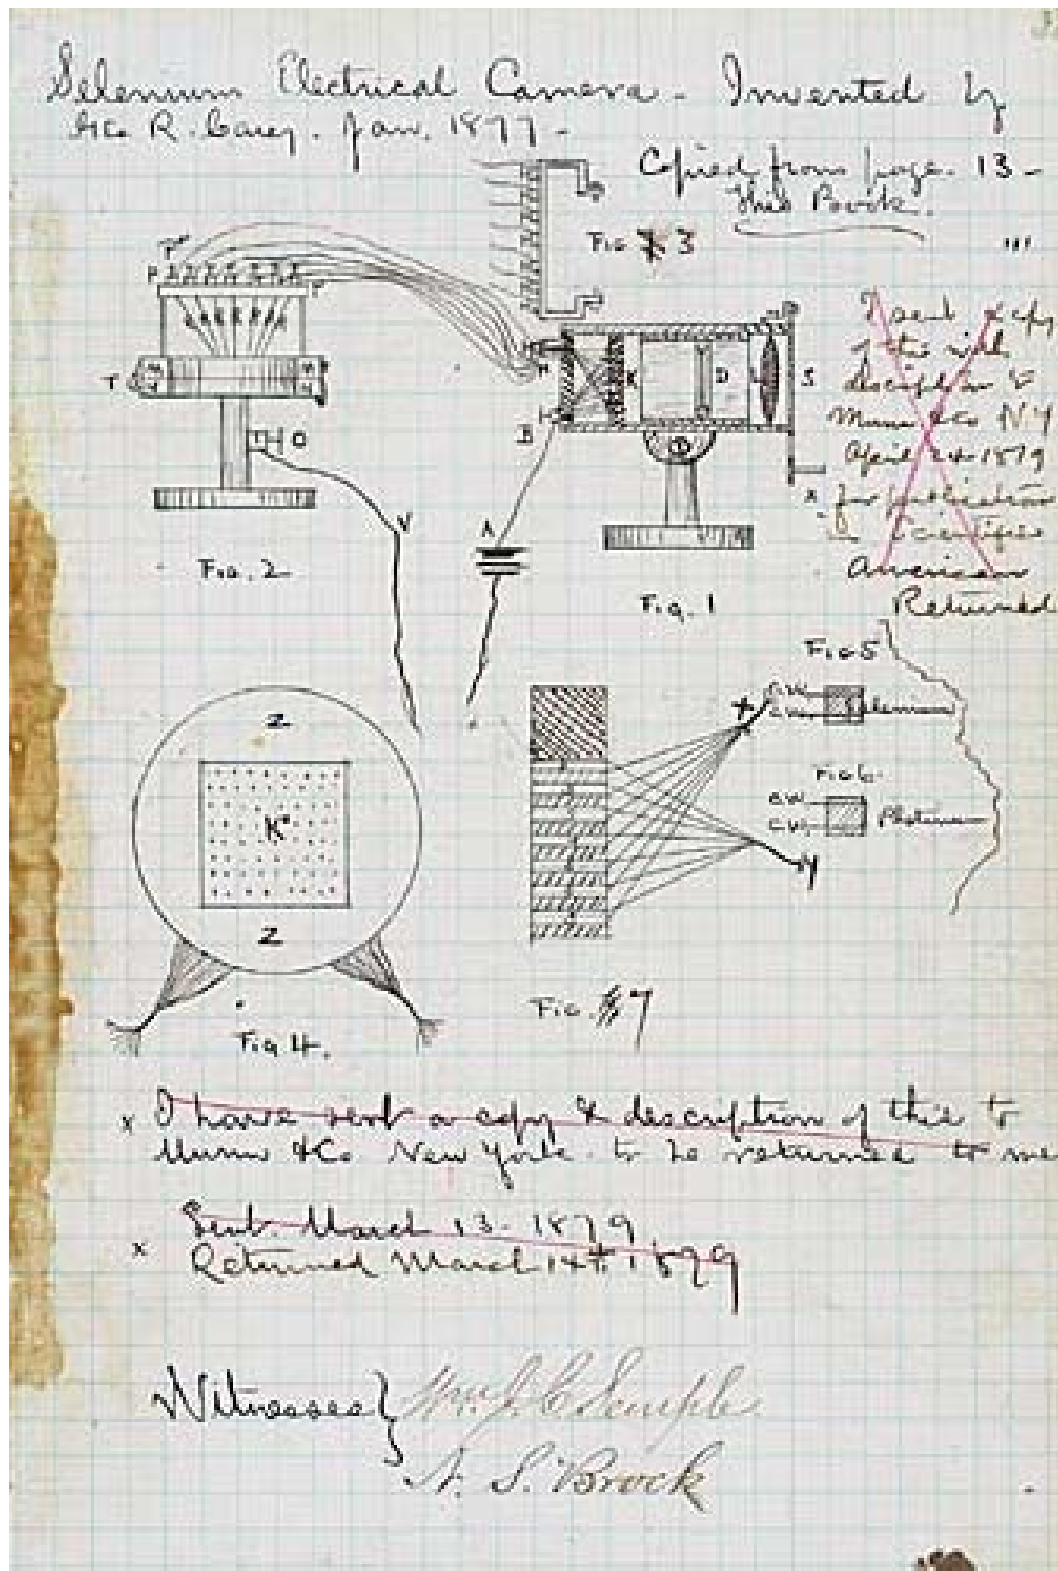 Selenium Electrical Camera - Invented by
Geo R. Carey. Jan. 1877 -
Copied from page 13 -
This Book.
Fig 3
"'
P"
P
P
T
O
V
Fig. 2
B
A
K
D
L
S
Fig. 1
I sent a copy
of this with
description to
Munn & Co N.Y
April 24 1879
x for publication
in Scientific
American
Returned
Z
K"
Z
Fig 4.
Fig 5
C.W
C.W
Selenium
Fig 6
C.W
C.W
Platinum
X
Y
Fig. 7
x I have sent a copy & description of this to
Munn & Co New York. to be returned to me
Sent. March 13 - 1879
x Returned March 14th 1879
Witnesses }
Wm. J. C. Semple
A. S. Brock